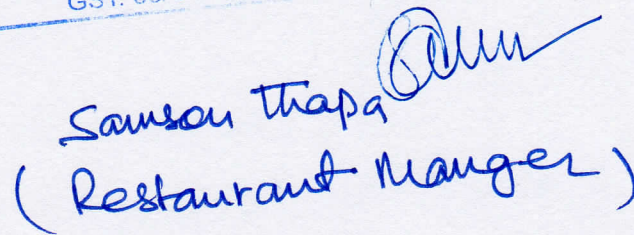 GST:
Samson Thapa
( Restaurant Manger )